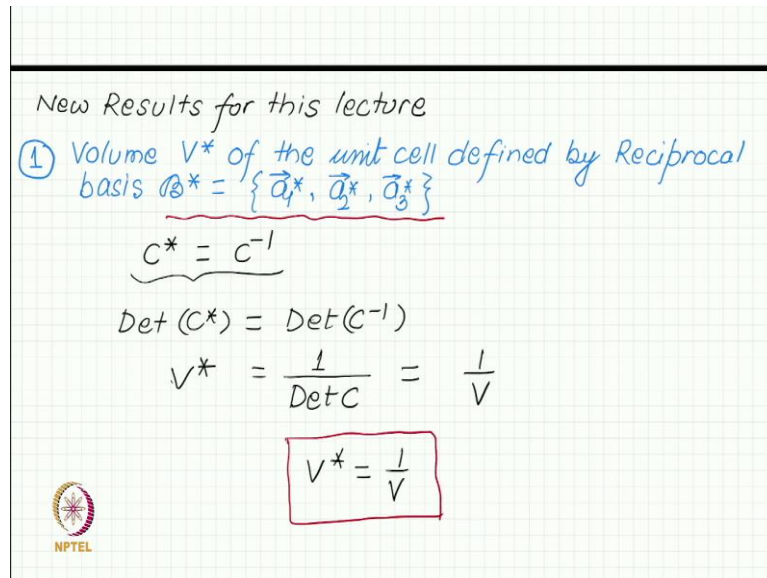 New Results for this lecture
① Volume V* of the unit cell defined by Reciprocal
basis B* = {a⃗₁*, a⃗₂*, a⃗₃*}
C* = C⁻¹
Det (C*) = Det (C⁻¹)
V* = 1/Det C = 1/V
V* = 1/V
NPTEL